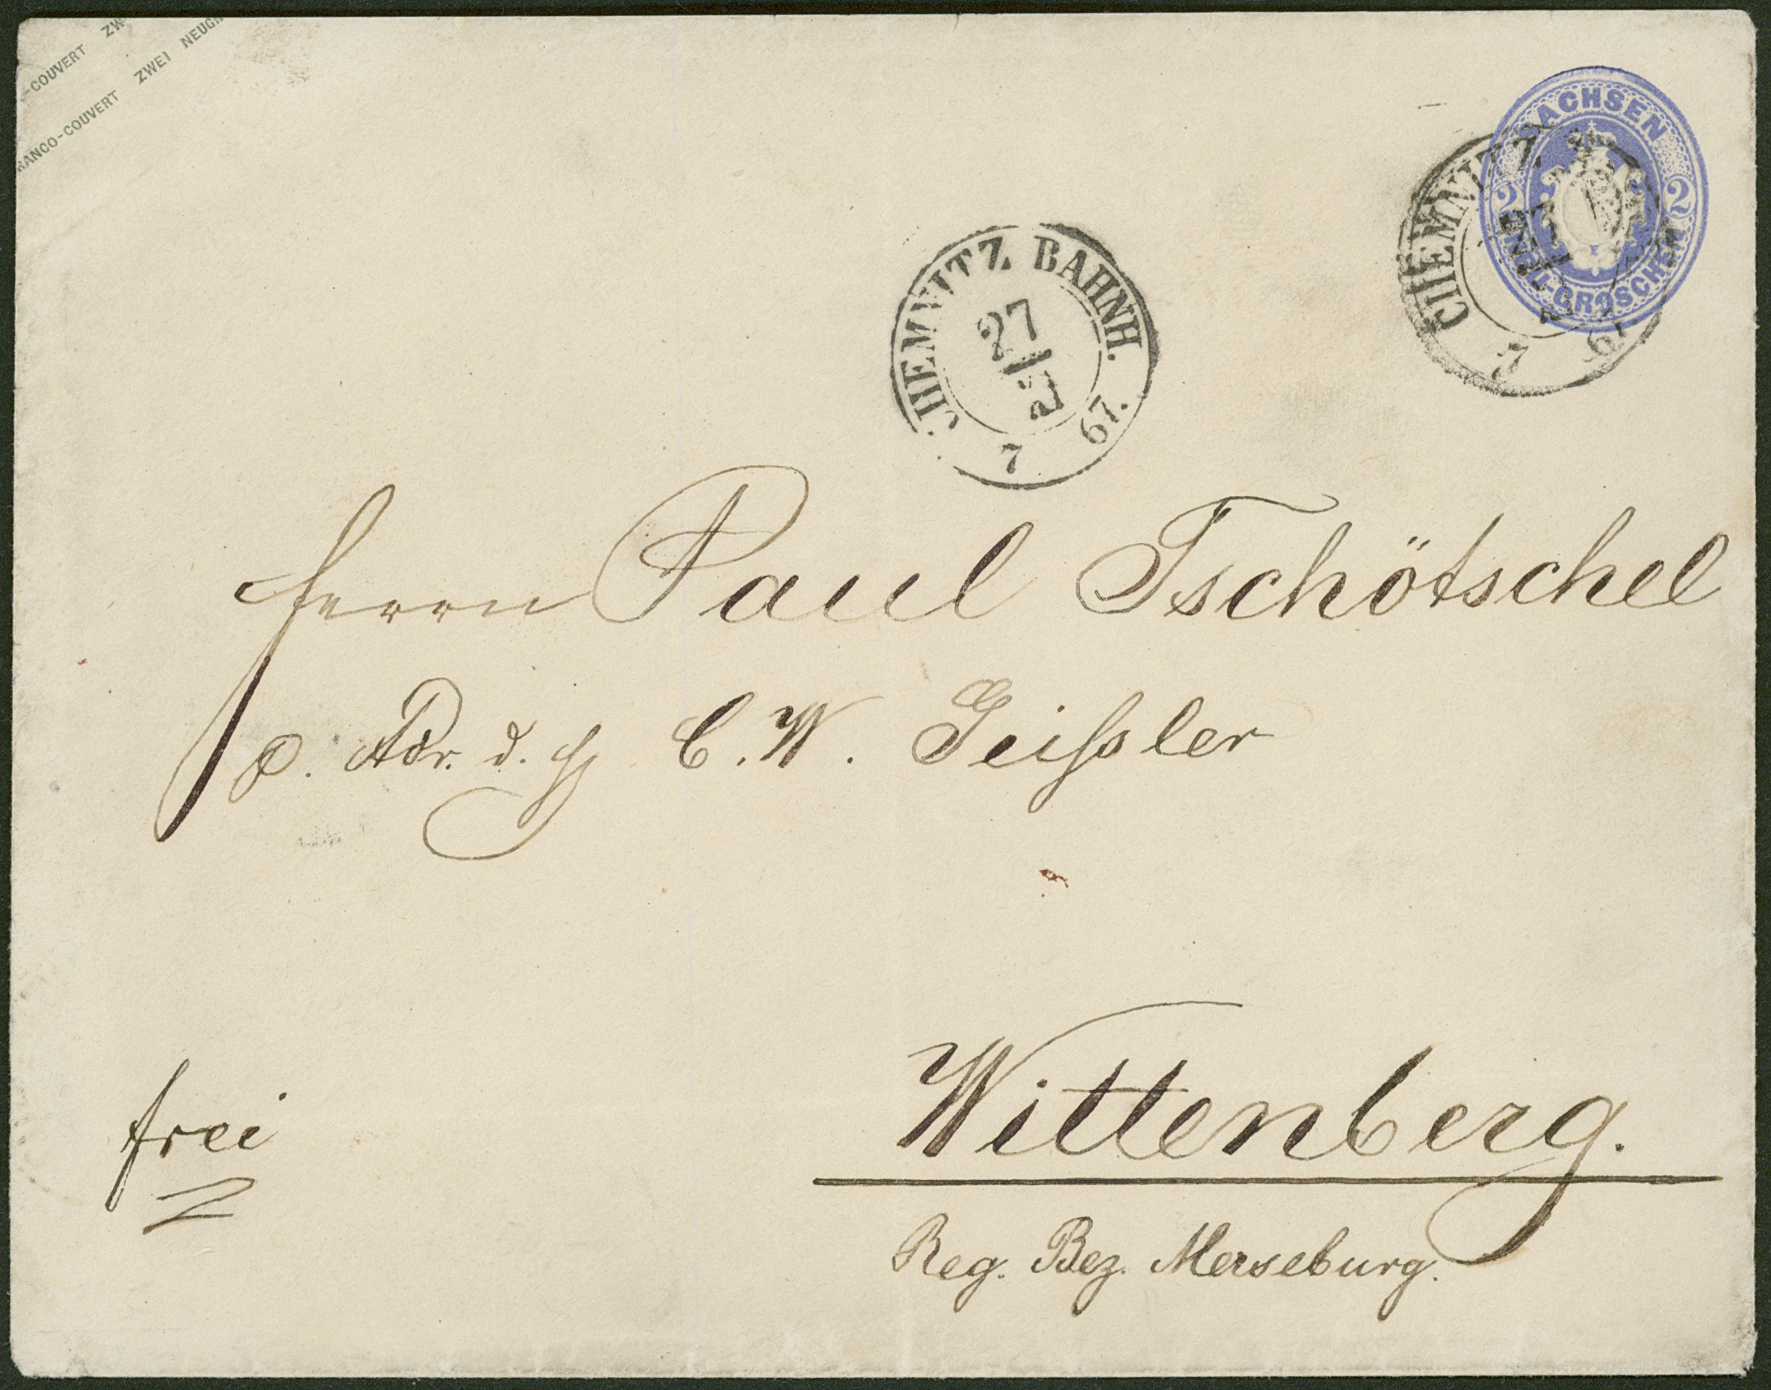 -COUVERT ZW
RANCO-COUVERT ZWEI NEUGR
SACHSEN
2 2
GROSCHEN
CHEMNITZ
27
7 67.
CHEMNITZ BAHNH.
27
7 67.
Herrn Paul Tschötschel
p. Adr. d. H C. W. Geißler
frei
Wittenberg.
Reg. Bez. Merseburg.